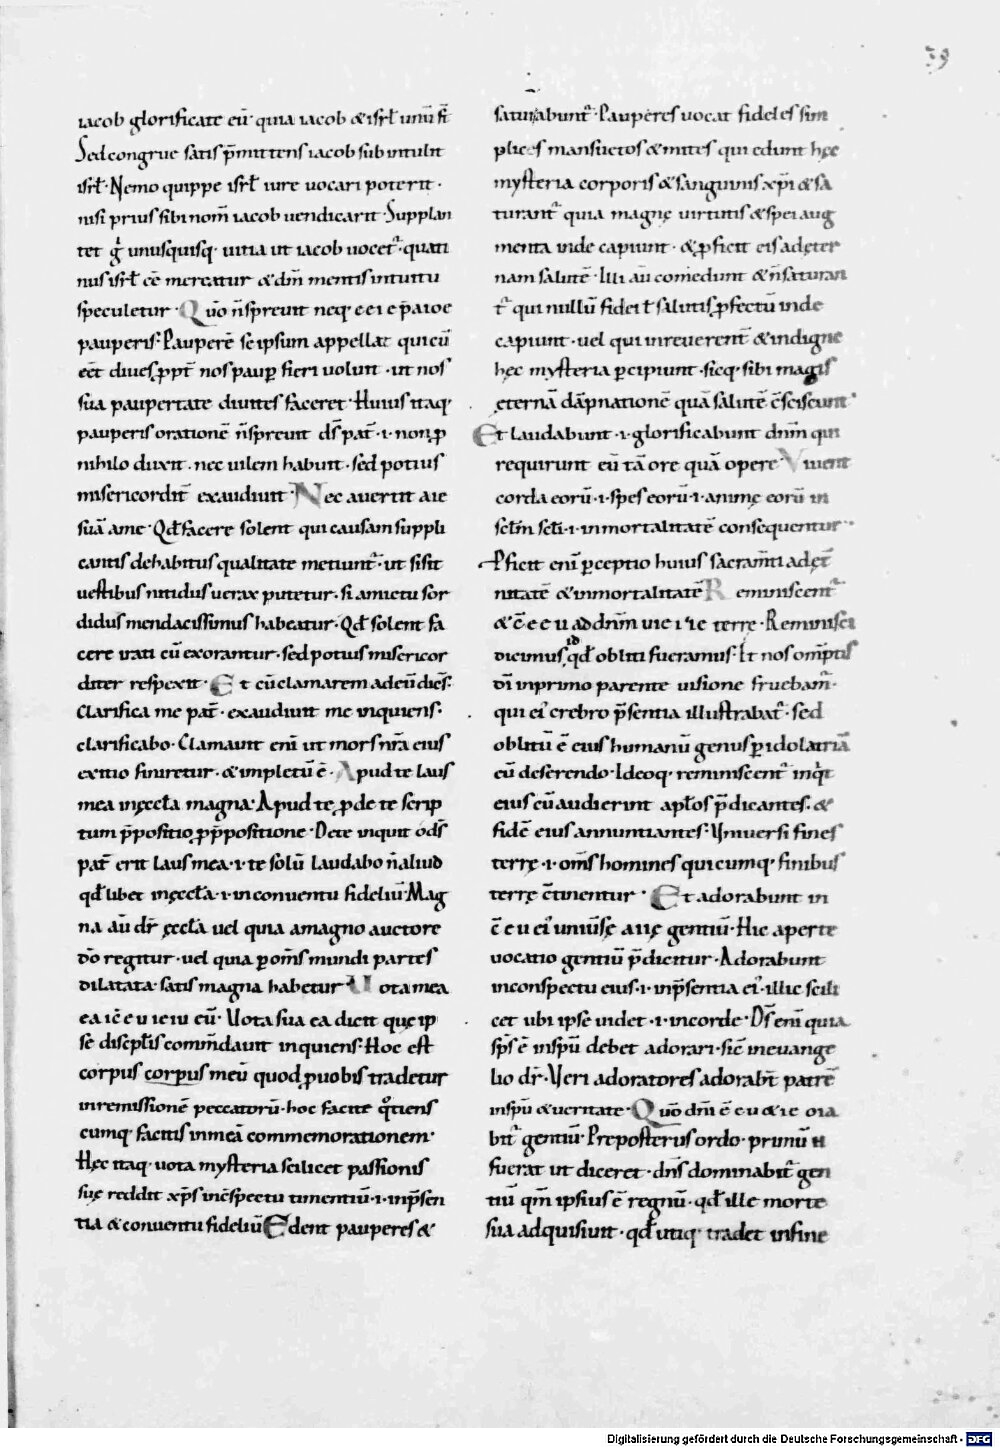 39
iacob glorificate eū · quia iacob & isrł unū sт̄
Sed congrue satis p̄mittens iacob subintulit
isrł · Nemo quippe isrł iure uocari poterit ·
nisi prius sibi nom̄ iacob uendicarit · Supplan
tet g̊ unusquisq· uitia ut iacob uocet᷑ · quati
nus isrł ēē mereatur & dm̄ mentis intuitu
speculetur · Quō n̄ spreuit neq· e e i e p̄ aioe
pauperis · Pauperē se ipsum appellat qui cū
eēt diues ꝓpt̄ nos paup̄ fieri uoluit · ut nos
sua paupertate diuites faceret · Huius itaq·
pauperis orationē n̄ spreuit ds̄ pat̄ · i · non ꝓ
nihilo duxit · nec uilem habuit · sed potius
misericordit̄ exaudiuit · Nec auertit a i e
suā a me · Qđ facere solent qui causam suppli
cantis de habitus qualitate metiunt᷑ · ut si sit
uestibus nitidus uerax putetur · si amictu sor
didus mendacissimus habeatur · Qđ solent fa
cere irati cū exorantur · sed potius misericor
diter respexit · Et cū clamarem ad eū dic̄s ·
Clarifica me pat̄ · exaudiuit me inquiens ·
clarificabo · Clamauit eni᷑ ut mors nr̄a eius
exitio finiretur · & impletū ē · Apud te laus
mea in ęccła magna · Apud te ꝓ de te scrip
tum p̄positio ꝓ p̄positione · De te inquit o ds̄
pat̄ erit laus mea · i · te solū laudabo n̄ aliud
qđ libet in ęccła · i · in conuentu fideliū · Mag
na aū dr̄ ęccła uel quia a magno auctore
dō regitur · uel quia ꝑ om̄s mundi partes
dilatata satis magna habetur · Uota mea
e a i c̄ e u i e i u eū · Uota sua ea dicit quę ip
se discipłis com̄dauit inquiens · Hoc est
corpus corpus meū quod ꝓ uobis tradetur
in remissionē peccatorū · hoc facite q°tiens
cumq· facitis in meā commemorationem ·
Hęc itaq· uota mysteria scilicet passionis
suę reddit xp̄s in c̄spectu timentiū · i · in p̄sen
tia & conuentu fideliū Edent pauperes &
saturabunt᷑ · Pauperes uocat fideles sim
plices mansuetos & mites qui edunt hęc
mysteria corporis & sanguinis xp̄i & sa
turant᷑ quia magnę uirtutis & spei aug
menta inde capiunt · & ꝓficit eis ad ęter
nam salutē · Illi aū comedunt & n̄ saturan
t᷑ qui nullū fidei ł salutis ꝓfectū inde
capiunt · uel qui inreuerent̄ & indigne
hęc mysteria ꝑcipiunt · sicq· sibi magis
ęternā dāpnationē quā salutē c̄sciscunt ·
Et laudabunt · i · glorificabunt dnm̄ qui
requirunt eū tā ore quā opere · Viuent
corda eorū · i · spes eorū · i · animę eorū in
sc̄lm sc̄li · i · inmortalitatē consequentur ·
Pficit eni᷑ ꝑceptio huius sacram̄ti ad ęt̄
nitatē & inmortalitatē Reminiscent᷑
& c̄ e c u ad dnm̄ u i e i᷑ i e terrę · Reminisci
dicimus id qđ obliti fueramus · Et nos om̄ptis
dī in primo parente uisione fruebam᷑ ·
qui ei᷑ crebro p̄sentia illustrabat᷑ · sed
oblitū ē eius humanū genus ꝑ idolatriā
eū deserendo · Ideoq· reminiscent᷑ inq̇t
eius cū audierint apłos p̄dicantes · &
fidē eius annuntiantes · Uniuersi fines
terrę · i · om̄s homines qui cumq· finibus
terrę c̄tinentur · Et adorabunt in
c̄ e u ei᷑ uniūsę a i i ę gentiū · Hic aperte
uocatio gentiū p̄dicitur · Adorabunt
in conspectu eius · i · in p̄sentia ei᷑ · illic scili
cet ubi ipse uidet · i · in corde · Ds̄ eni᷑ quia
sp̄s ē in sp̄u debet adorari · sic̄ in euange
lio dr̄ · Ueri adoratores adorabt̄ patrē
in sp̄u & ueritate · Quō dn̄i ē e u & i e o i a
bit᷑ gentiū · Preposterus ordo · primū n
fuerat ut diceret · dn̄s dominabit᷑ gen
tiū qm̄ ipsius ē regnū · qđ ille morte
sua adquisiuit · qđ utiq· tradet in fine
Digitalisierung gefördert durch die Deutsche Forschungsgemeinschaft - DFG